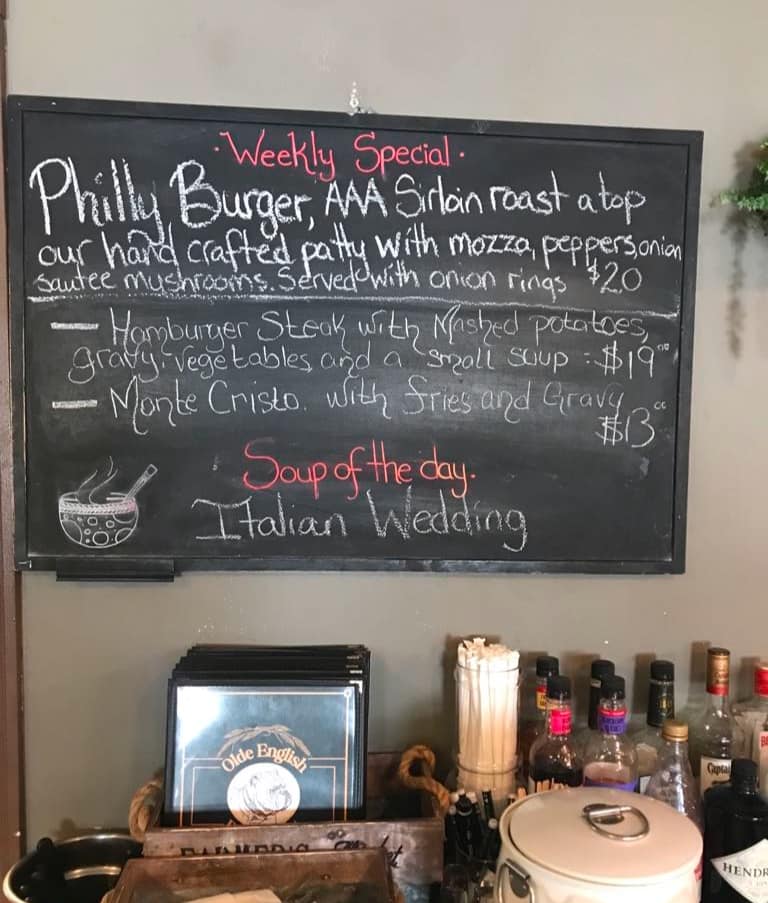 · Weekly Special ·
Philly Burger, AAA Sirloin roast atop
our hand crafted patty with mozza, peppers, onion
sautee mushrooms. Served with onion rings $20
— Hamburger Steak with Mashed potatoes,
gravy, vegetables and a small soup - $19.00
— Monte Cristo. with fries and Gravy
$13.00
Soup of the day.
Italian Wedding
Olde English
FARMER'S Market
Capta
HENDR